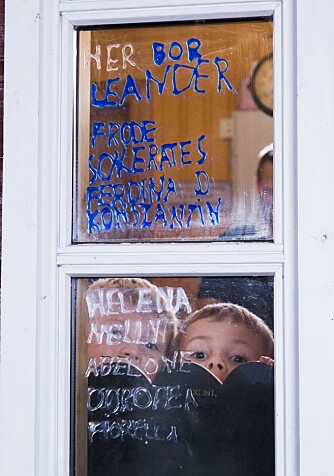 HER BOR
LEANDER
FRODE
SOKERATES
FERDINA D
KONSTANTIN
HELENA
NELLY
ABELONE
DOROTEA
FIORELLA